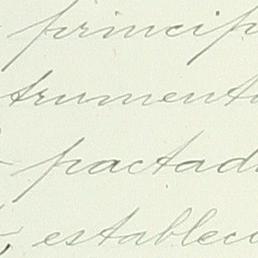 princip
trument
pactad
establec